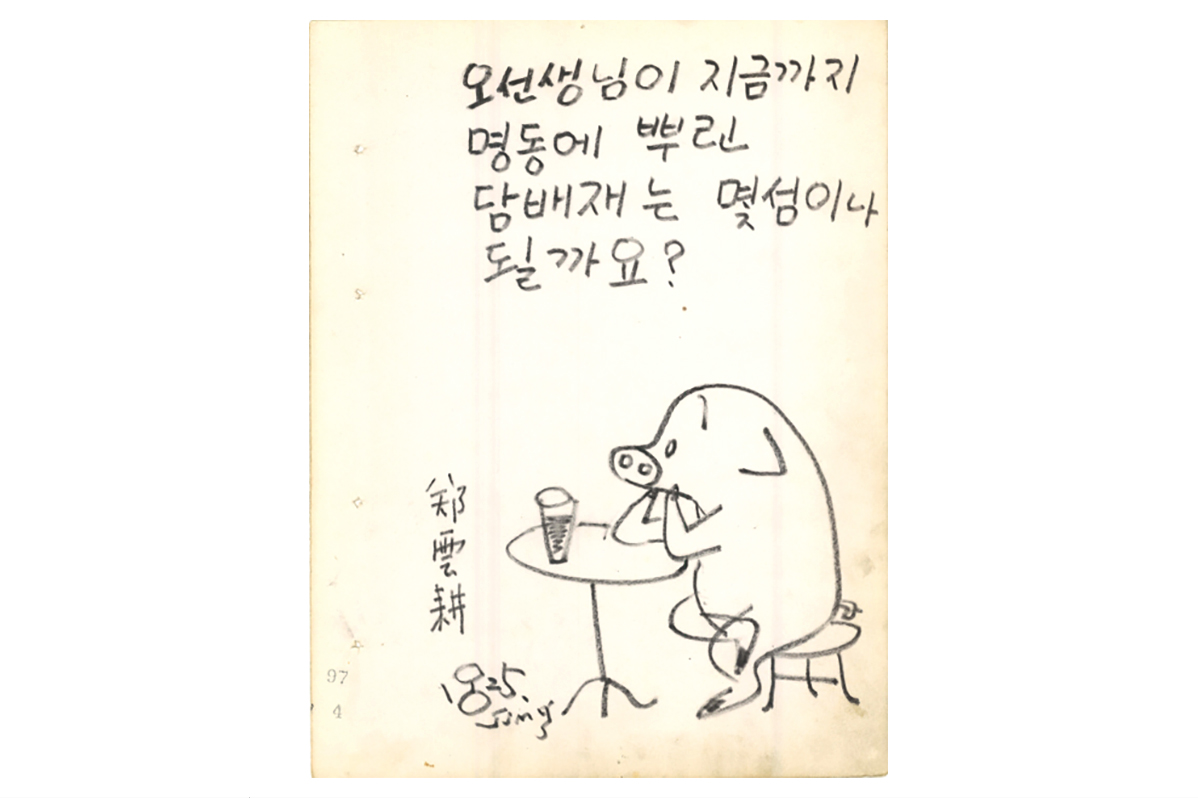 오선생님이 지금까지
명동에 뿌린
담배재는 몇섬이나
될까요?
鄭雲耕
97
4